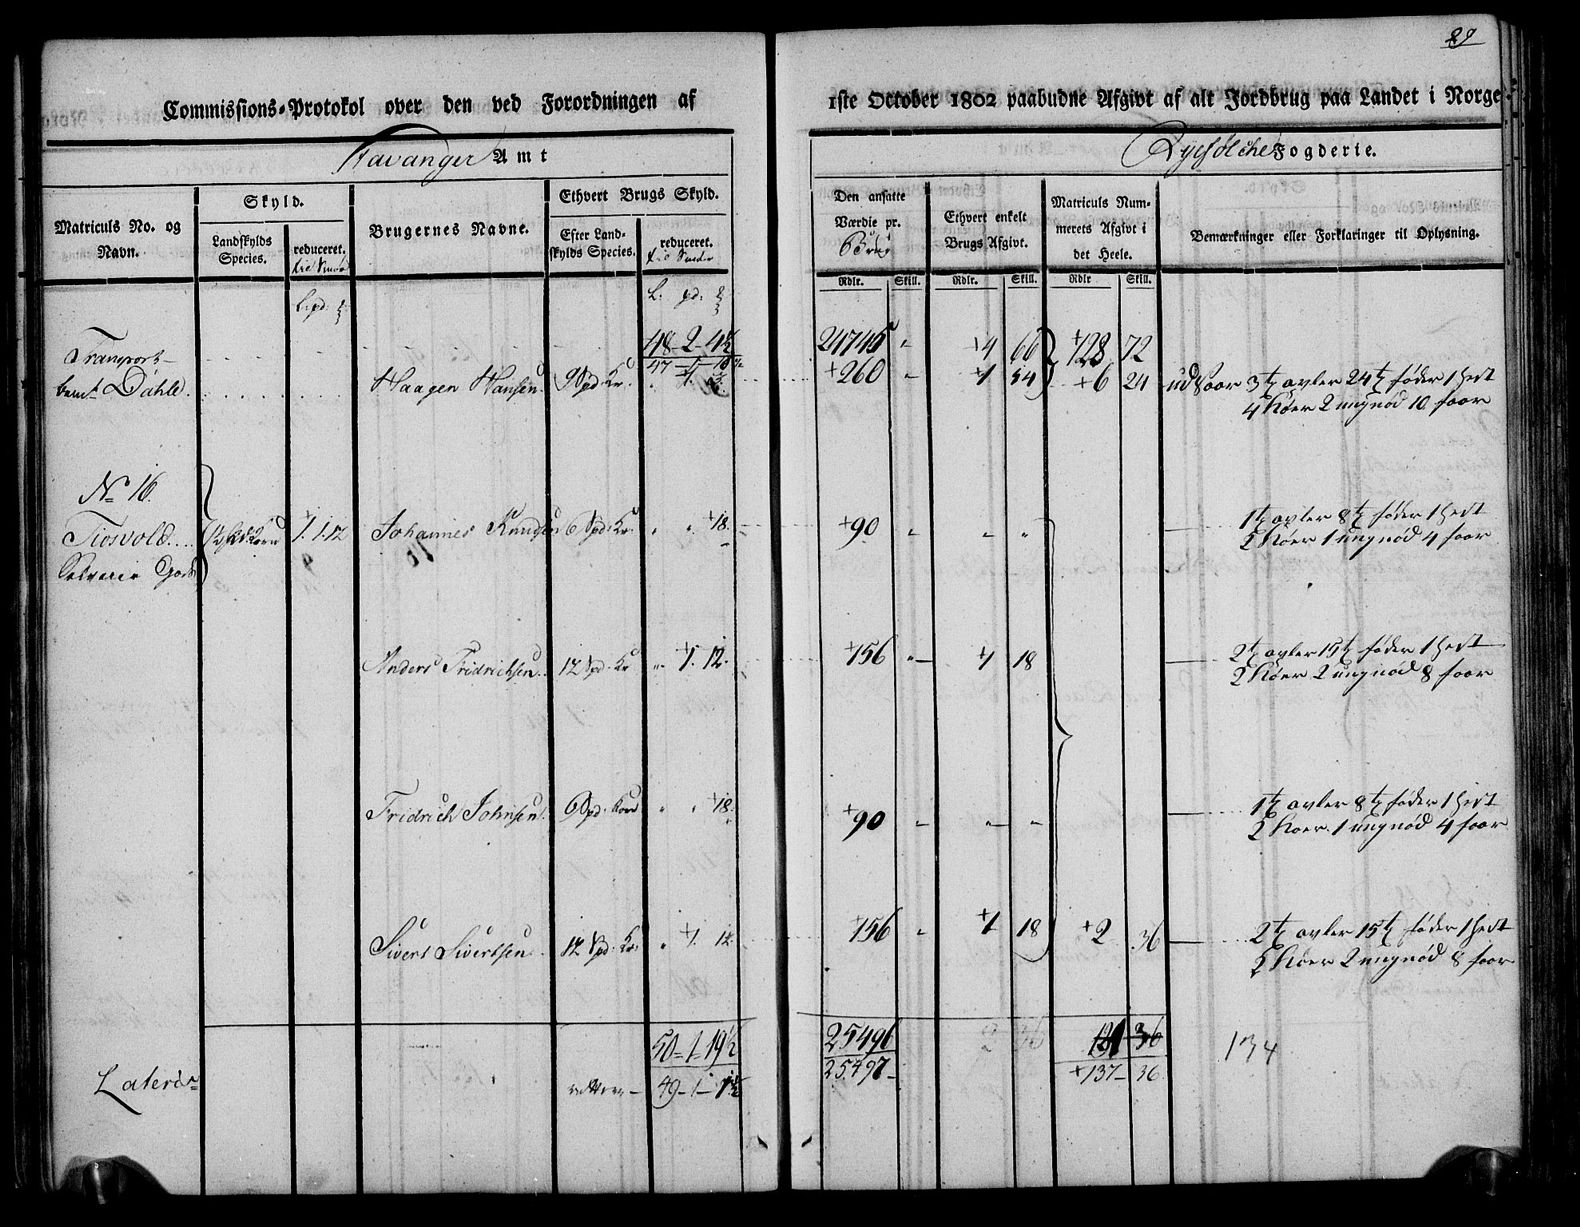 29
Commissions-Protokol over den ved Forordningen af 1ste October 1802 paabudne Afgivt af alt Jordbrug paa Landet i Norge
Stavanger Amt
Ryefölche Fogderie.
Matriculs No. og Navn.
Skyld.
Landskylds Species.
reduceret.
Brugernes Navne.
Ethvert Brugs Skyld.
Efter Landskylds Species.
reduceret.
Den ansatte Værdie pr.
Ethvert enkelt Brugs Afgivt.
Matriculs Nummerets Afgivt i det Heele.
Bemærkninger eller Forklaringer til Oplysning.
Rdlr. Skill. Rdlr. Skill. Rdlr Skill.
Transport 48-2-4½ 24745 " +4 66 +128 72
Dahle Haagen Hansen 9 Spd Kr +260 +1 54 +6 24 udsaar 3½ avler 24½ föder 1 hest
4 Köer 2 ungnöd 10 faar
No 16.
Tiosvold 1. 1. 12 Johannes Knudsen 6 Spd Kr " " +18. +90 " " " 1½ avler 8½ föder 1 hest
2 Köer 1 ungnöd 4 faar
Anders Fridrichsen 12 Spd Kr " +1. 12. +156 " +1 18 2½ avler 15½ föder 1 hest
2 Köer 2 ungnöd 8 faar
Fridrich Johnsen 6 Spd Korn " " +18. +90 1½ avler 8½ föder 1 hest
2 Köer 1 ungnöd 4 faar
Sivert Sivertsen 12 Spd Kr " +1. 12. +156 " +1 18 +2 36 2½ avler 15½ föder 1 hest
2 Köer 2 ungnöd 8 faar
50-1-19½ 25496 36 134
Lateris 49-1-1½ 25497 +137-36